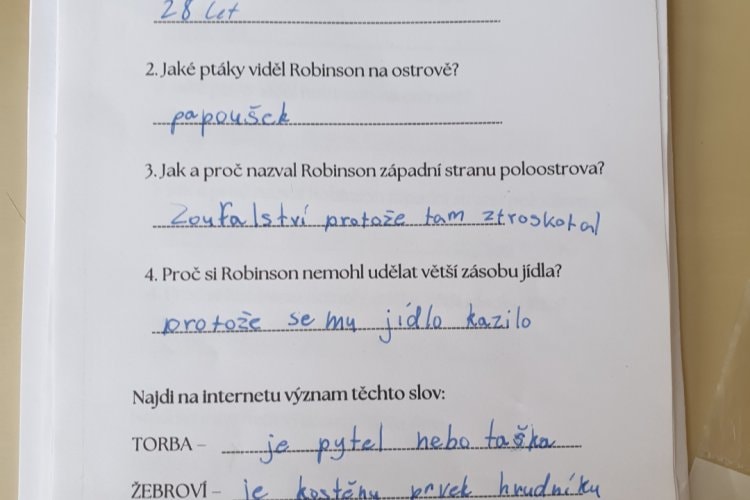 28 let
2. Jaké ptáky viděl Robinson na ostrově?
papoušek
3. Jak a proč nazval Robinson západní stranu poloostrova?
Zoufalství protože tam ztroskotal
4. Proč si Robinson nemohl udělat větší zásobu jídla?
protože se mu jídlo kazilo
Najdi na internetu význam těchto slov:
TORBA – je pytel nebo taška
ŽEBROVÍ – je kostěný prvek hrudníku